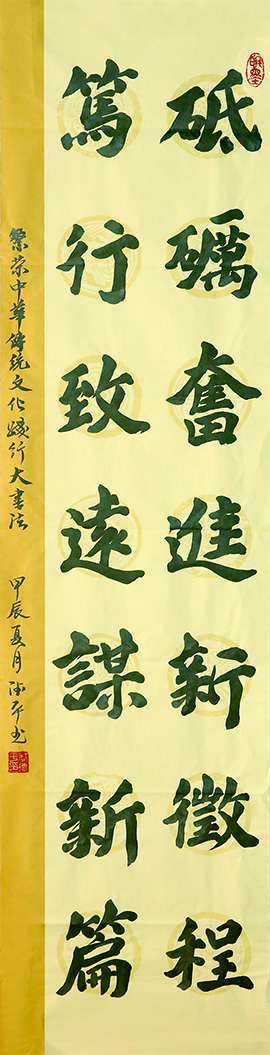 砥礪奮進新徵程
篤行致遠謀新篇
繁荣中華傳統文化踐行大書法
甲辰夏月